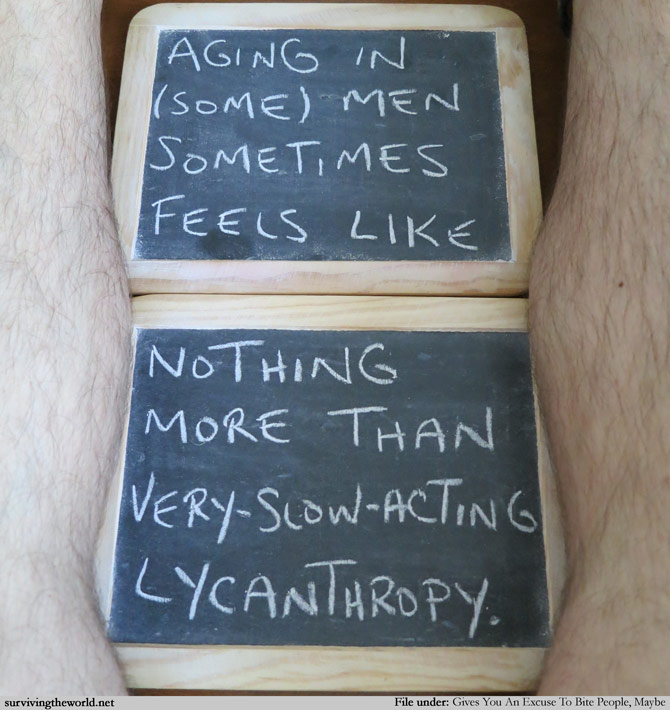 AGING IN
(SOME) MEN
SOMETIMES
FEELS LIKE
NOTHING
MORE THAN
VERY-SLOW-ACTING
LYCANTHROPY.
survivingtheworld.net
File under: Gives You An Excuse To Bite People, Maybe